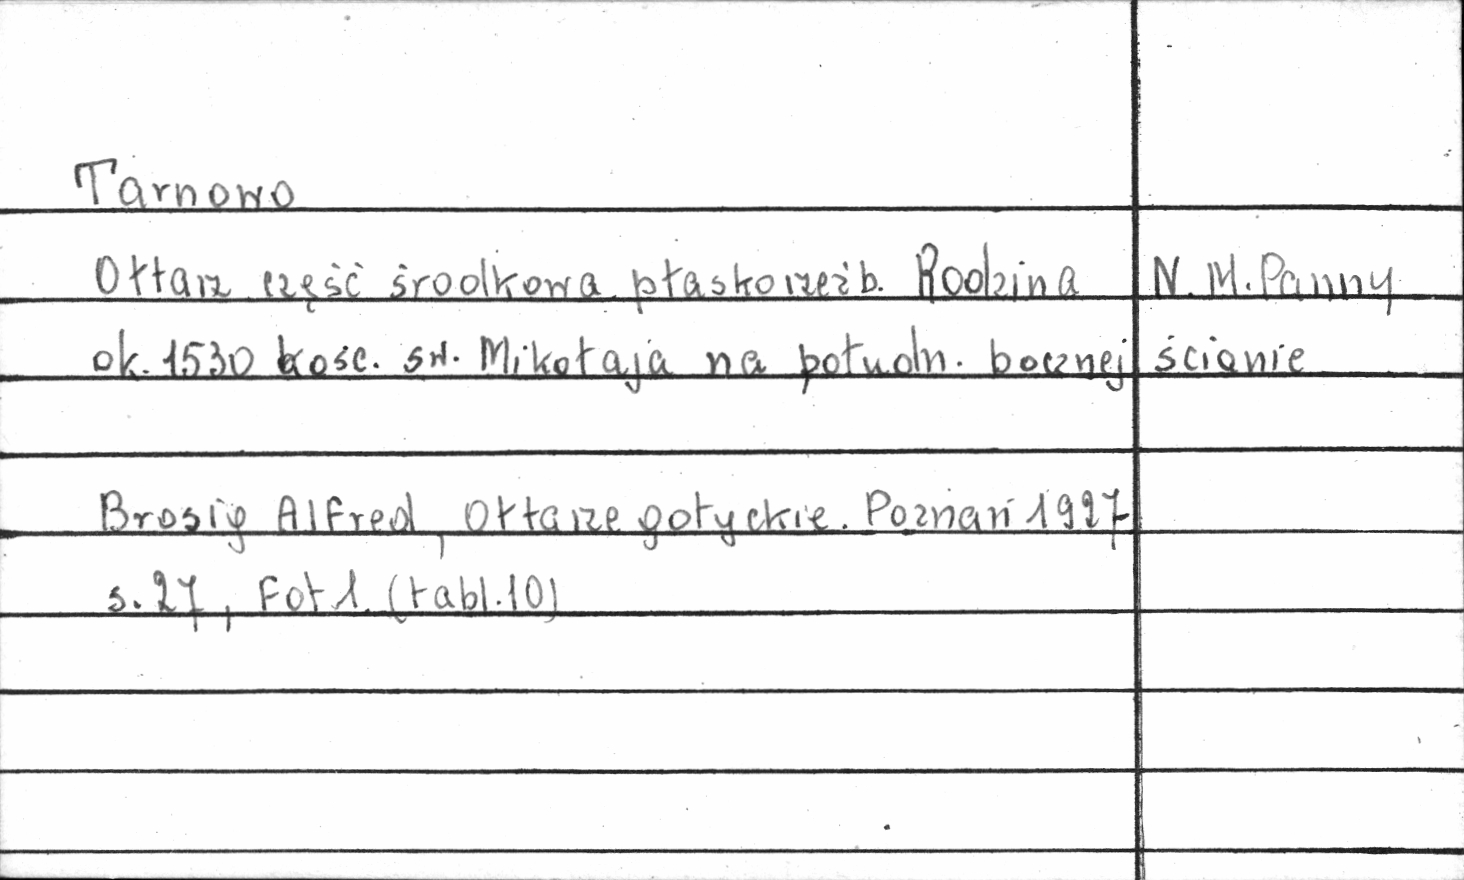 Tarnowo
Ołtarz część środkowa płaskorzeźb. Rodzina N. M. Panny
ok. 1530 kośc. św. Mikołaja na połudn. bocznej ścianie
Brosig Alfred, Ołtarze gotyckie. Poznań 1927
s. 27, Fot 1. (tabl. 10)